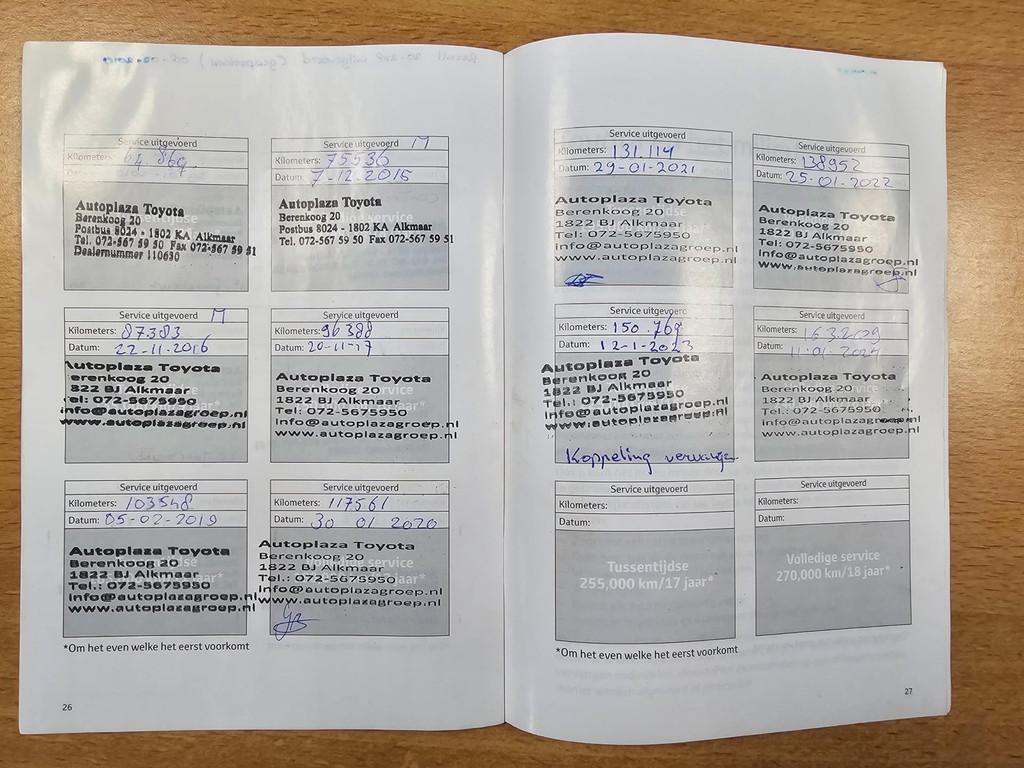 Service uitgevoerd
Kilometers: 64.869
Datum:
Autoplaza Toyota
Berenkoog 20
Postbus 8024 - 1802 KA Alkmaar
Tel. 072-567 59 50 Fax 072-567 59 51
Dealernummer 110630
Service uitgevoerd M
Kilometers: 75536
Datum: 7-12-2015
Autoplaza Toyota
Berenkoog 20
Postbus 8024 - 1802 KA Alkmaar
Tel. 072-567 59 50 Fax 072-567 59 51
Service uitgevoerd M
Kilometers: 87383
Datum: 22-11-2016
Autoplaza Toyota
Berenkoog 20
1822 BJ Alkmaar
Tel.: 072-5675950
info@autoplazagroep.nl
www.autoplazagroep.nl
Service uitgevoerd
Kilometers: 96388
Datum: 20-11-17
Autoplaza Toyota
Berenkoog 20
1822 BJ Alkmaar
Tel: 072-5675950
info@autoplazagroep.nl
www.autoplazagroep.nl
Service uitgevoerd
Kilometers: 103548
Datum: 05-02-2019
Autoplaza Toyota
Berenkoog 20
1822 BJ Alkmaar
Tel.: 072-5675950
info@autoplazagroep.nl
www.autoplazagroep.nl
Service uitgevoerd
Kilometers: 117561
Datum: 30 01 2020
Autoplaza Toyota
Berenkoog 20
1822 BJ Alkmaar
Tel.: 072-5675950
info@autoplazagroep.nl
www.autoplazagroep.nl
*Om het even welke het eerst voorkomt
26
Service uitgevoerd
Kilometers: 131.114
Datum: 29-01-2021
Autoplaza Toyota
Berenkoog 20
1822 BJ Alkmaar
Tel: 072-5675950
info@autoplazagroep.nl
www.autoplazagroep.nl
Service uitgevoerd
Kilometers: 138952
Datum: 25-01-2022
Autoplaza Toyota
Berenkoog 20
1822 BJ Alkmaar
Tel: 072-5675950
info@autoplazagroep.nl
www.autoplazagroep.nl
Service uitgevoerd
Kilometers: 150.769
Datum: 12-1-2023
Autoplaza Toyota
Berenkoog 20
1822 BJ Alkmaar
Tel.: 072-5675950
info@autoplazagroep.nl
www.autoplazagroep.nl
Koppeling vervangen
Service uitgevoerd
Kilometers: 163.209
Datum: 11-01-2024
Autoplaza Toyota
Berenkoog 20
1822 BJ Alkmaar
Tel: 072-5675950
info@autoplazagroep.nl
www.autoplazagroep.nl
Service uitgevoerd
Kilometers:
Datum:
Tussentijdse
255,000 km/17 jaar*
Service uitgevoerd
Kilometers:
Datum:
Volledige service
270,000 km/18 jaar*
*Om het even welke het eerst voorkomt
27